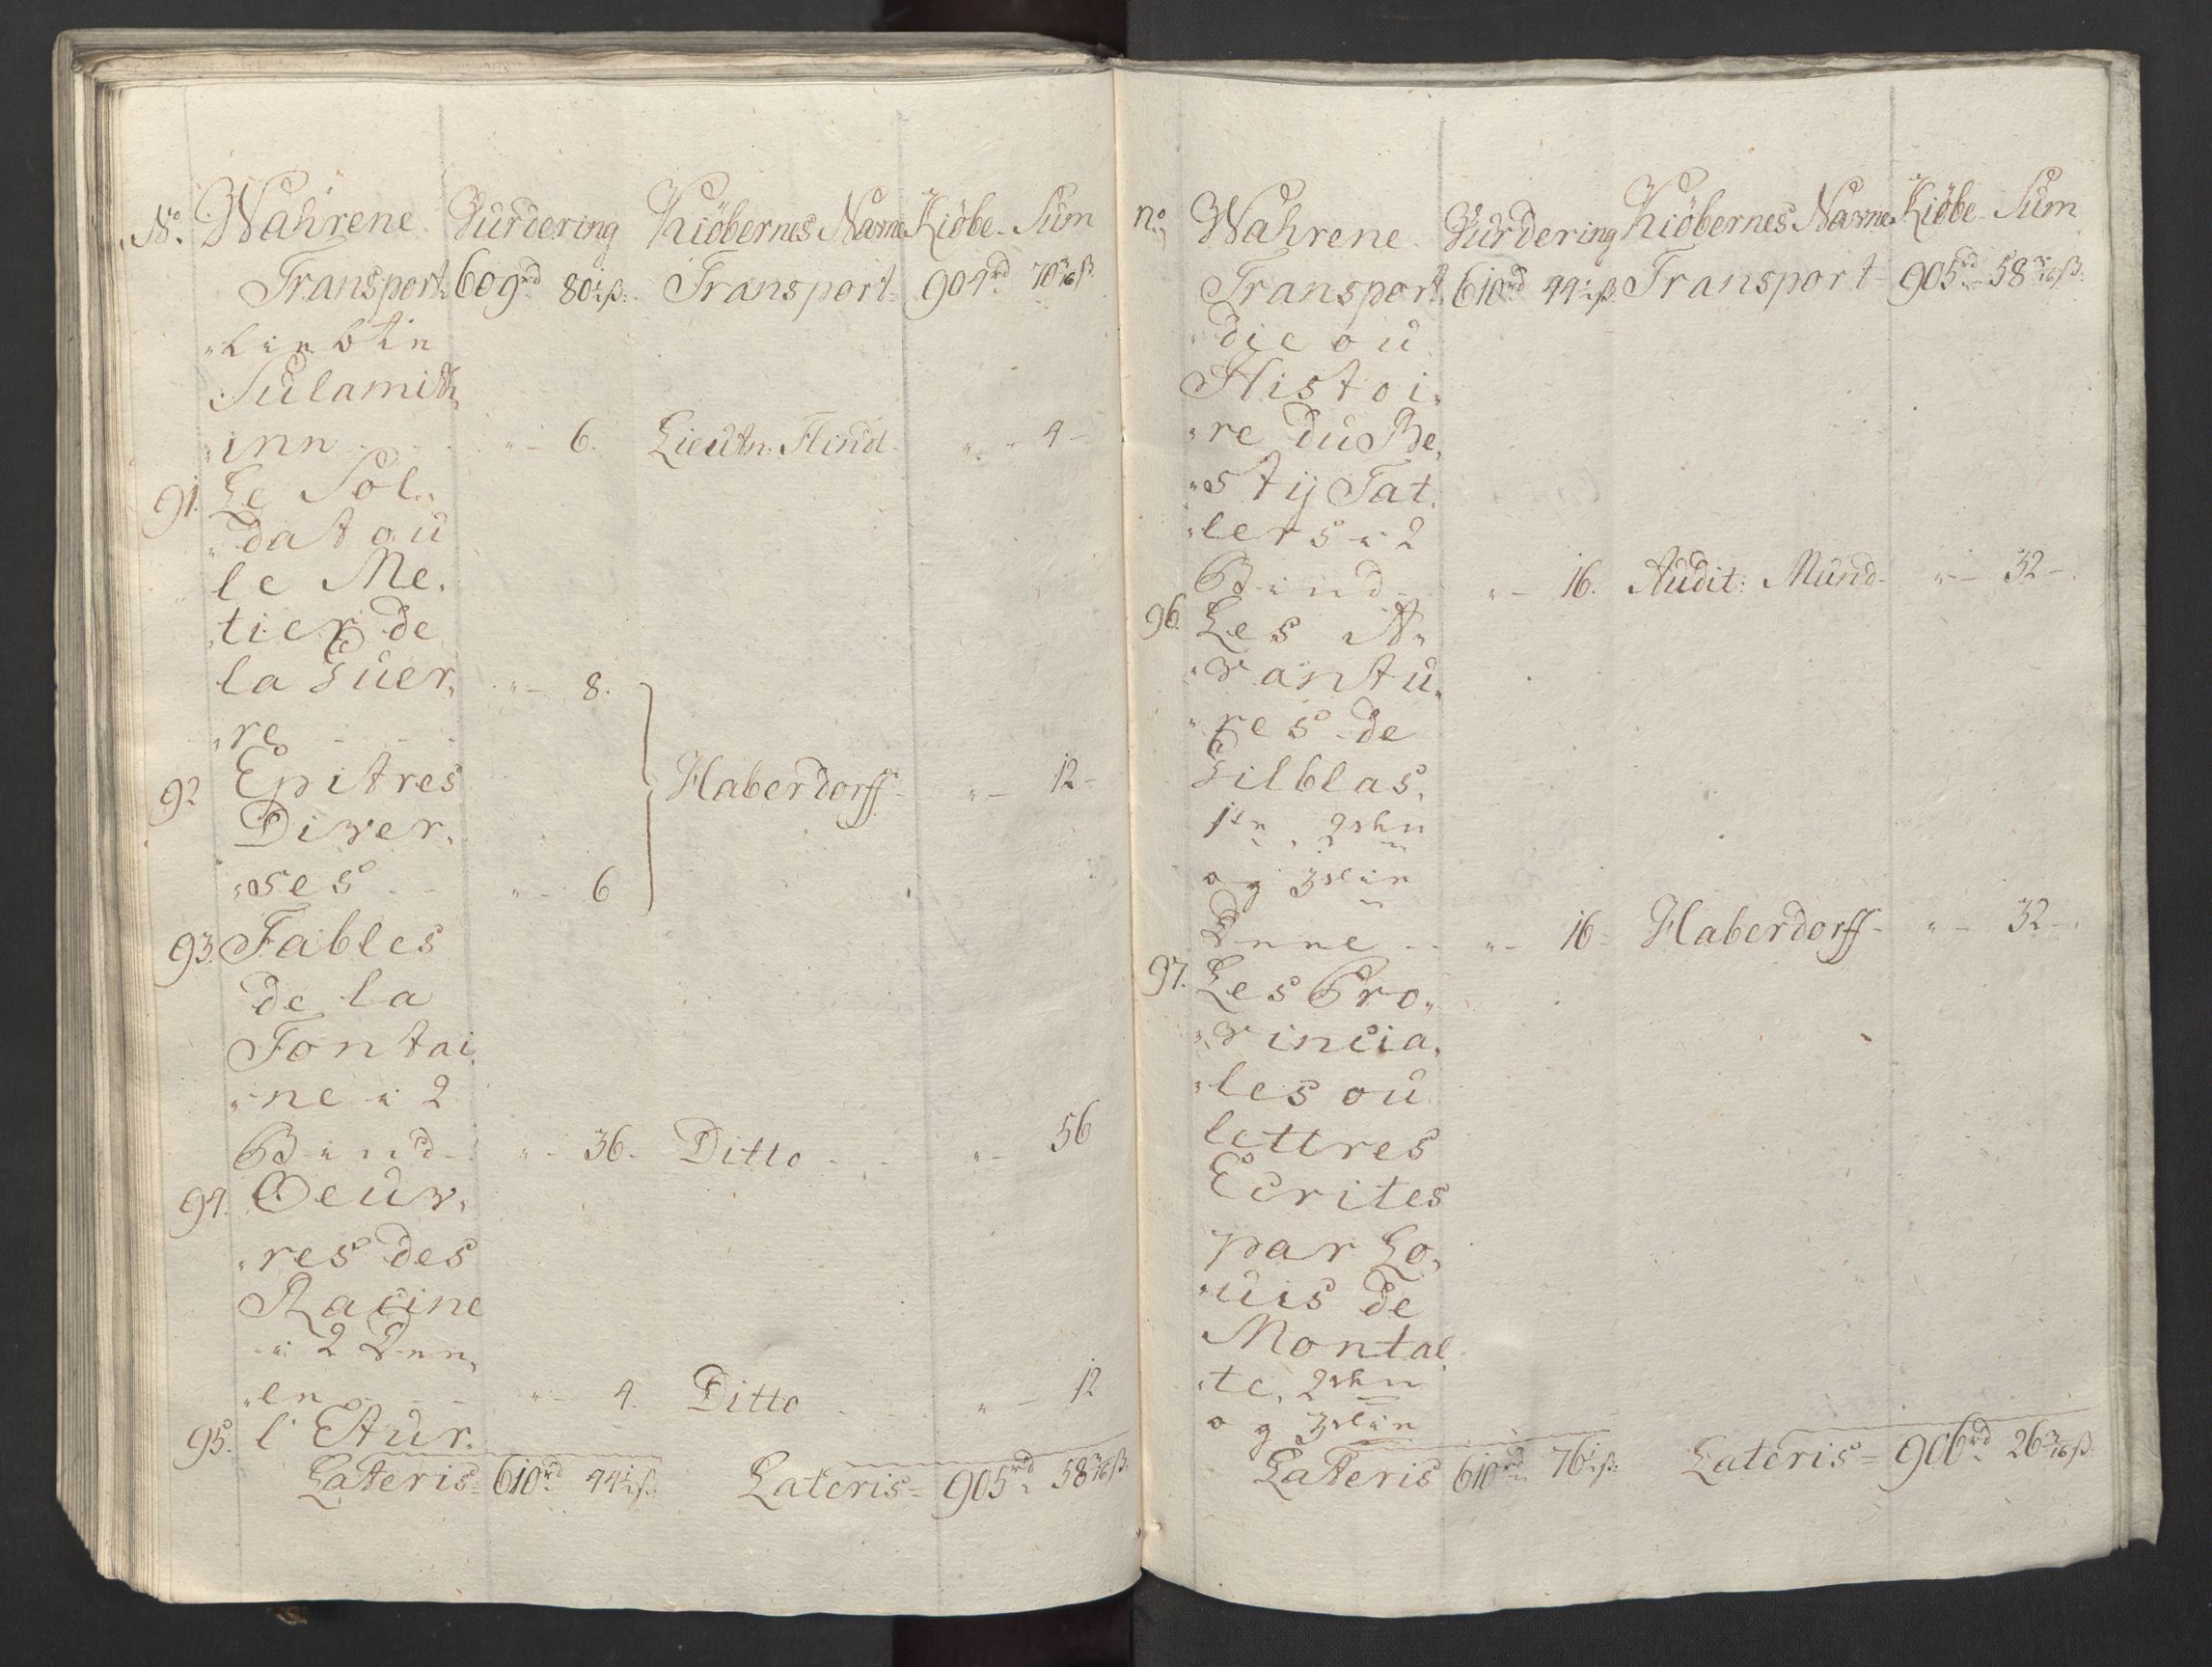 No. Wahrene. Vurdering Kiöbernes Navne Kiöbe- Sum
Transport 609rd 80½ß. Transport 904rd 70 3/16ß.
"liebten
Sulamith,
"inn " - 6. Lieutn: Flindt. " - 4 -
91. Le Sol,,
"dat ou
le Me,
"tier de
la Guer, " - 8.
"re
92 Epitres Haberdorff - " - 12 -
Diver,
"ses " - 6
93. Fables
de la
Fontai,
"ne i 2
Bind " - 36. Ditto " - 56
94. Oeuv,
"res des
Racine
i 2 Dee,
"len " - 4. Ditto " - 12
95. l'Etur,
Lateris 610rd 44½ß. Lateris = 905rd 58 3/16ß.
no. Wahrene. Vurdering Kiöbernes Navne Kiöbe- Sum
Transport 610rd 44½ß. Transport - 905rd 58 3/16ß.
"die ou
Histoi,
"re du Be,
"stij Tat,
"lers i 2
Bind " - 16. Audit: Mund - " - 32 -
96. Les A,
"vantu,
"res de
Gilblas,
1te, 2den
og 3die
Deele " - 16 - Haberdorff - " - 32 -
97. Les Pro,,
"vincia,
"les ou
lettres
Ecrites
par Lo,
"uis de
Montal,
"te, 2den
og 3die
Lateris 610rd 76½ß. Lateris = 906rd 26 3/16ß.